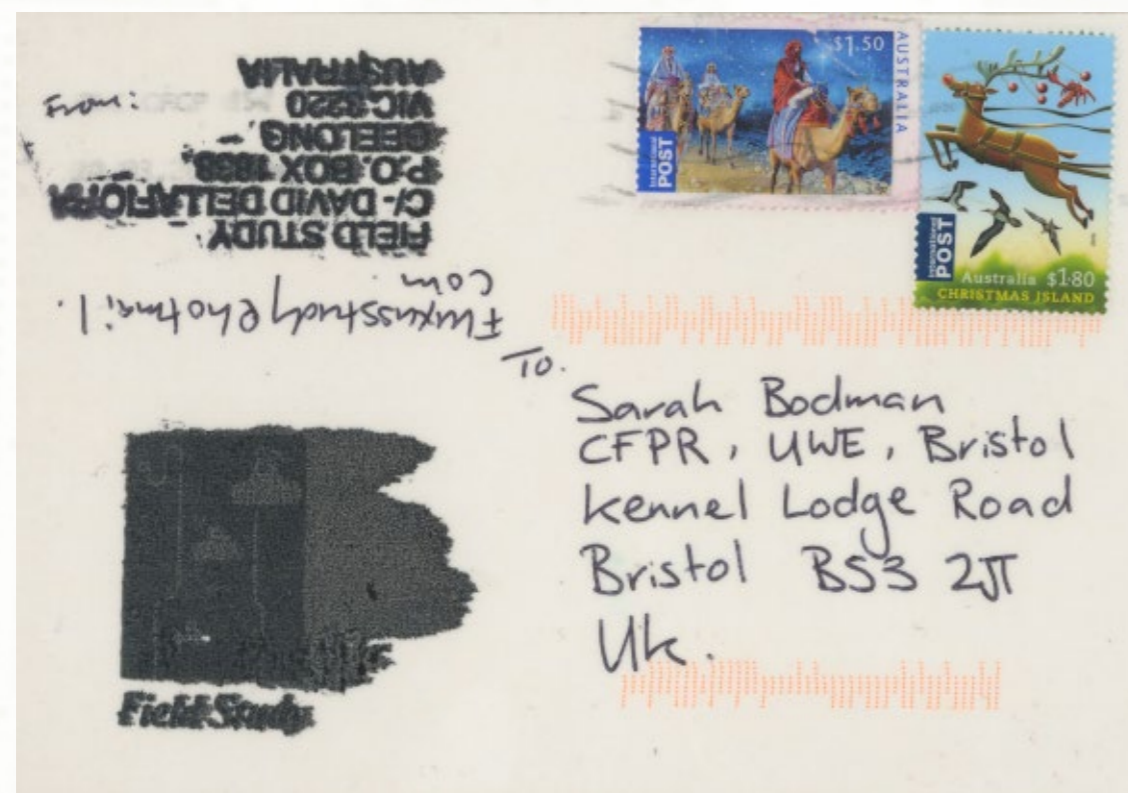 From:
FIELD STUDY
C/- DAVID DELLAFIORA
P.O. BOX 1838,
GEELONG,
VIC 3220
AUSTRALIA
Fluxusstudy@hotmail.
com.
$1.50
AUSTRALIA
International
POST
International
POST
Australia $1.80
CHRISTMAS ISLAND
To.
Sarah Bodman
CFPR, UWE, Bristol
Kennel Lodge Road
Bristol BS3 2JT
Uk.
Field Study